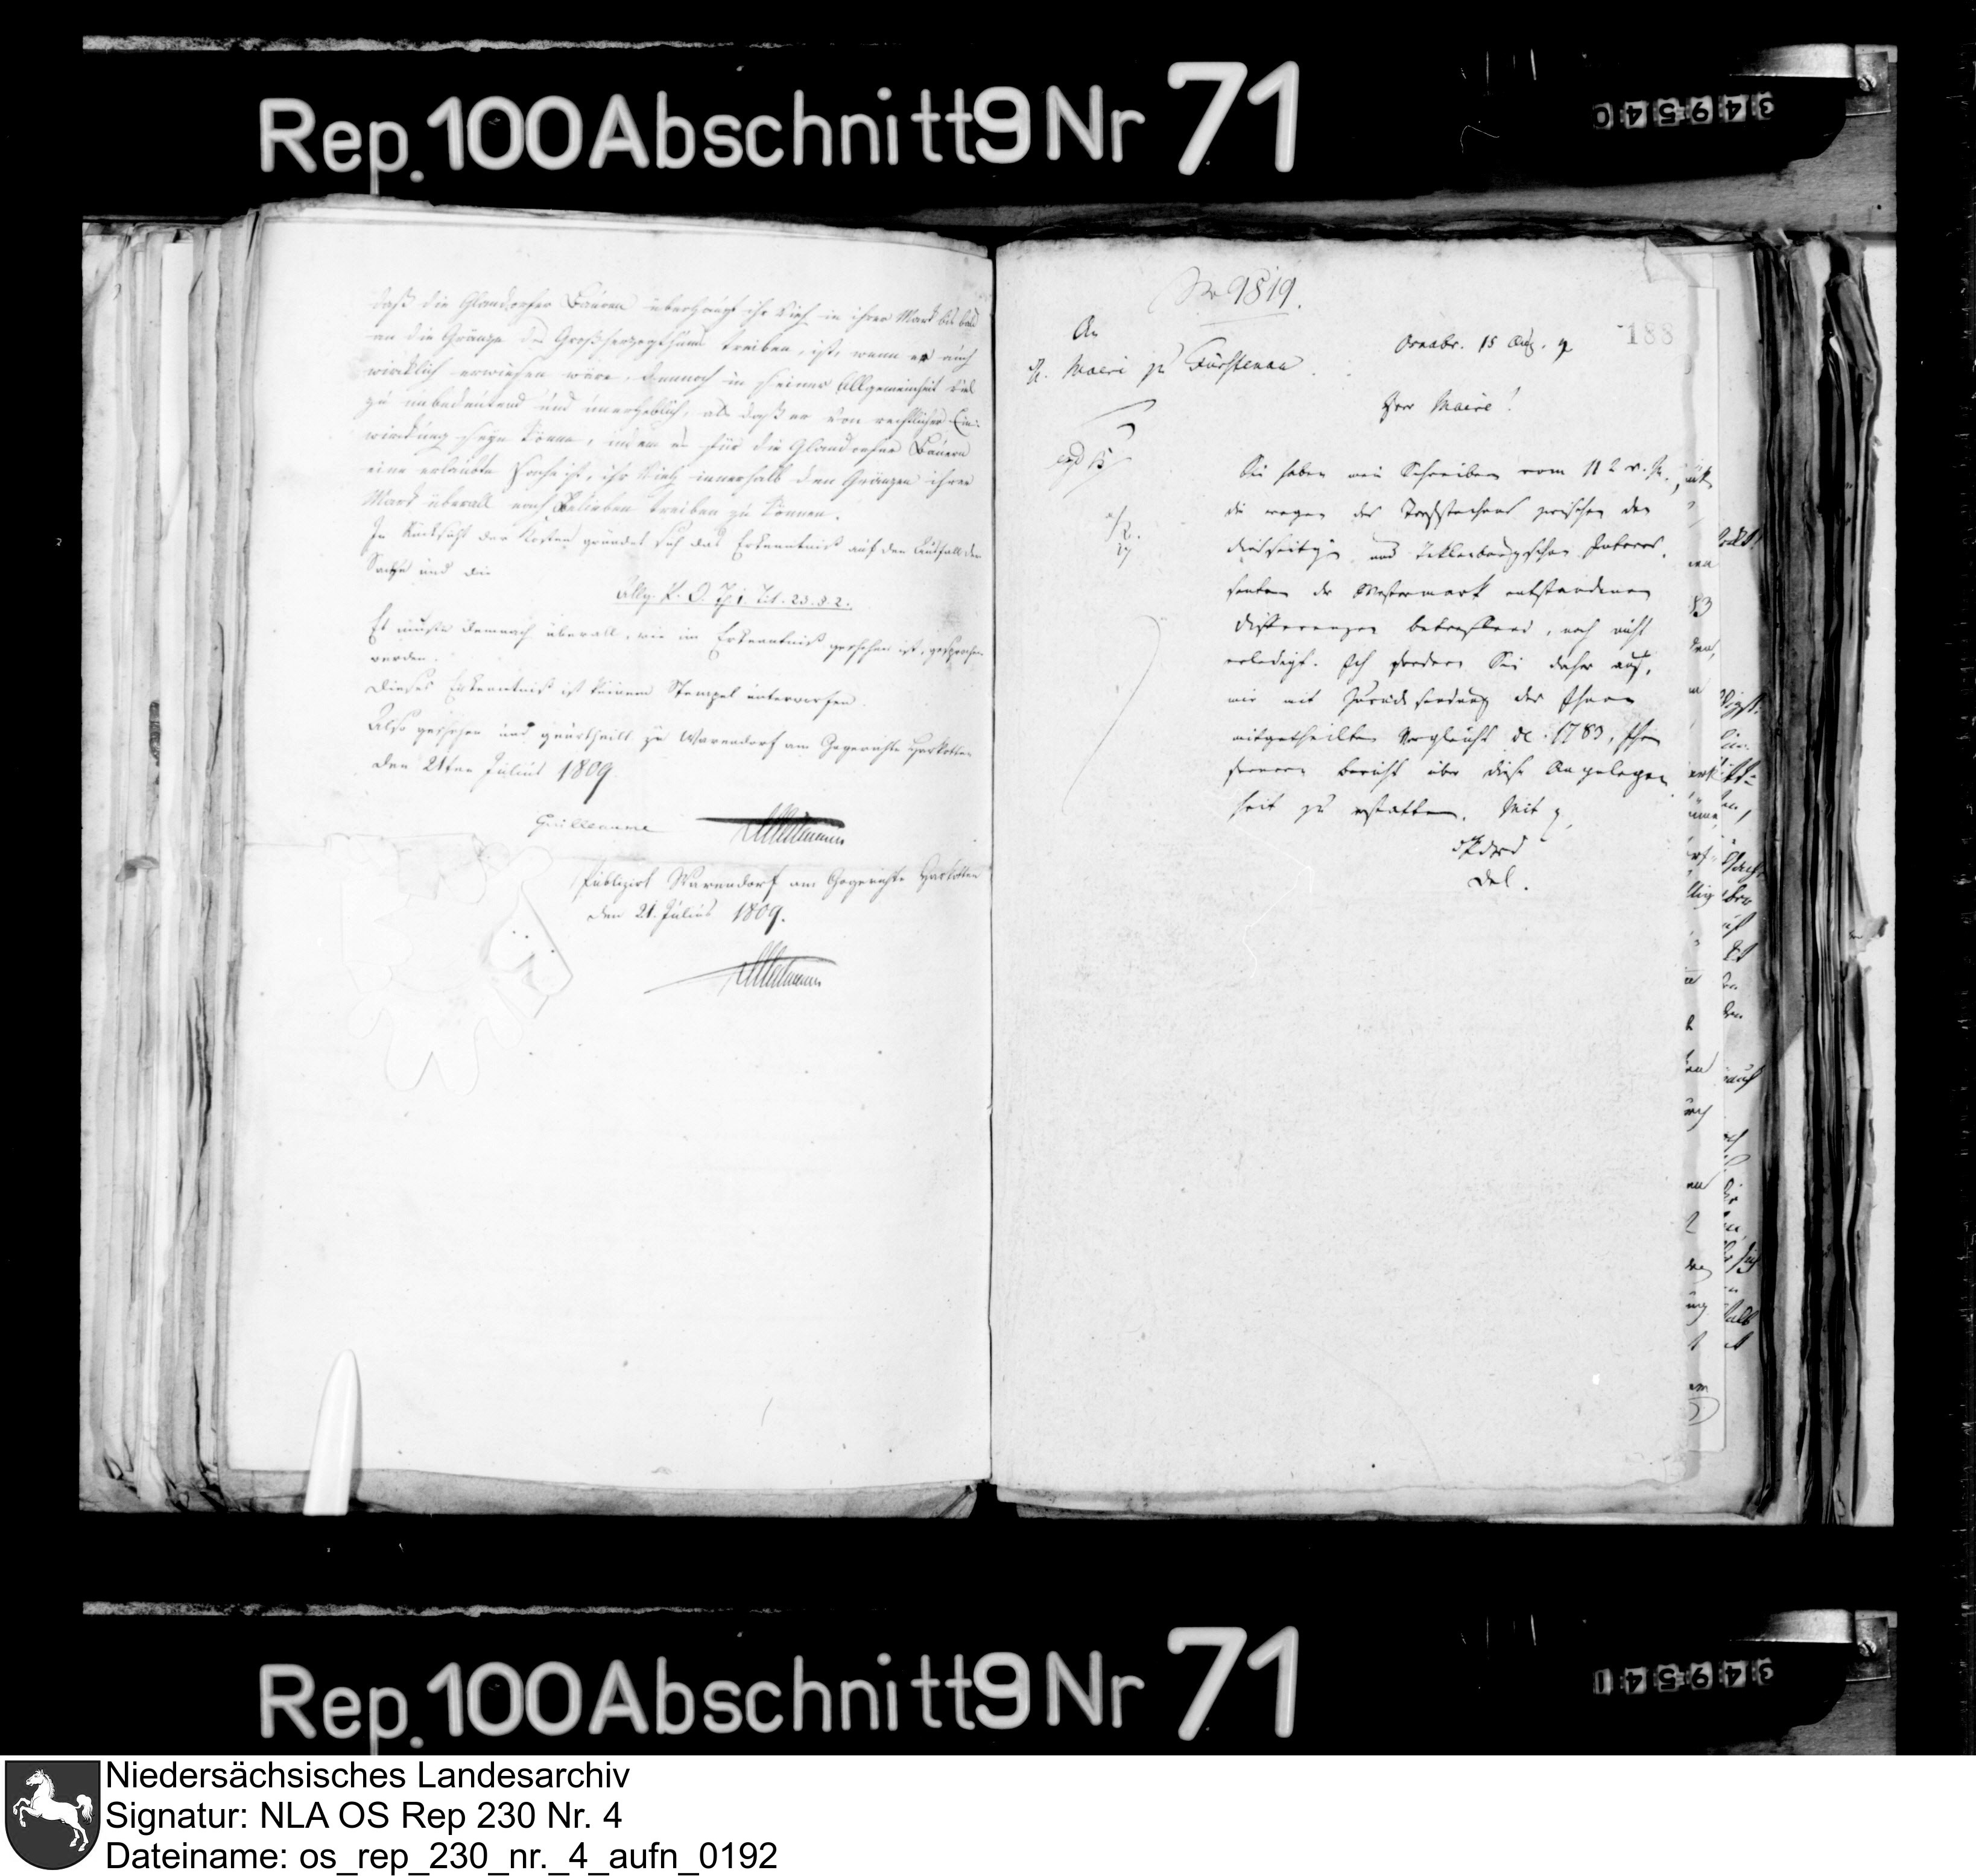 Rep. 100 Abschnitt 9 Nr 71
349540
daß die Glandorfer Bauren überhaupt ihr Vieh in ihrer Mark bis
an die Gränze des Großherzogthums treiben, ist, wenn er auch
wirklich erwiesen wäre, dennoch in seiner Allgemeinheit viel
zu unbedeutend und unerheblich, als daß er von rechtlicher Ein-
wirkung seyn könne, indem es für die Glandorfer Bauern
eine erlaubte Sache ist, ihr Vieh innerhalb den Gränzen ihrer
Mark überall nach Belieben treiben zu können.
In Rücksicht der Kosten gründet sich das Erkenntniß auf den Ausfall der
Sache und die
Allg. G. O. Th. 1. Tit. 23. §. 2.
Es mußte demnach überall, wie im Erkenntniß geschehen ist, gesprochen
werden.
Dieses Erkenntniß ist keinem Stempel unterworfen.
Also geschehen und geurtheilt zu Warendorf am Gogerichte Harkotten
den 21ten Julius 1809.
Guilleaume
Publizirt Warendorf am Gogerichte Harkotten
den 21. Julius 1809.
No 9819.
188
An
H. Maire zu Fürstenau.
Osnabr. 15 Aug.
Herr Maire!
Sie haben mein Schreiben vom
die wegen des Torfstechens zwischen den
diesseitigen und Teklenburgschen Interes-
senten der Westermark entstandenen
Differenzen betreffend, noch nicht
erledigt. Ich fordere Sie daher auf,
mir mit Zurücksendung des Ihnen
mitgetheilten Vergleichs de 1783, Ihren
ferneren Bericht über diese Angelegen
heit zu erstatten. Mit
Del.
Rep. 100 Abschnitt 9 Nr 71
349541
Niedersächsisches Landesarchiv
Signatur: NLA OS Rep 230 Nr. 4
Dateiname: os_rep_230_nr._4_aufn_0192